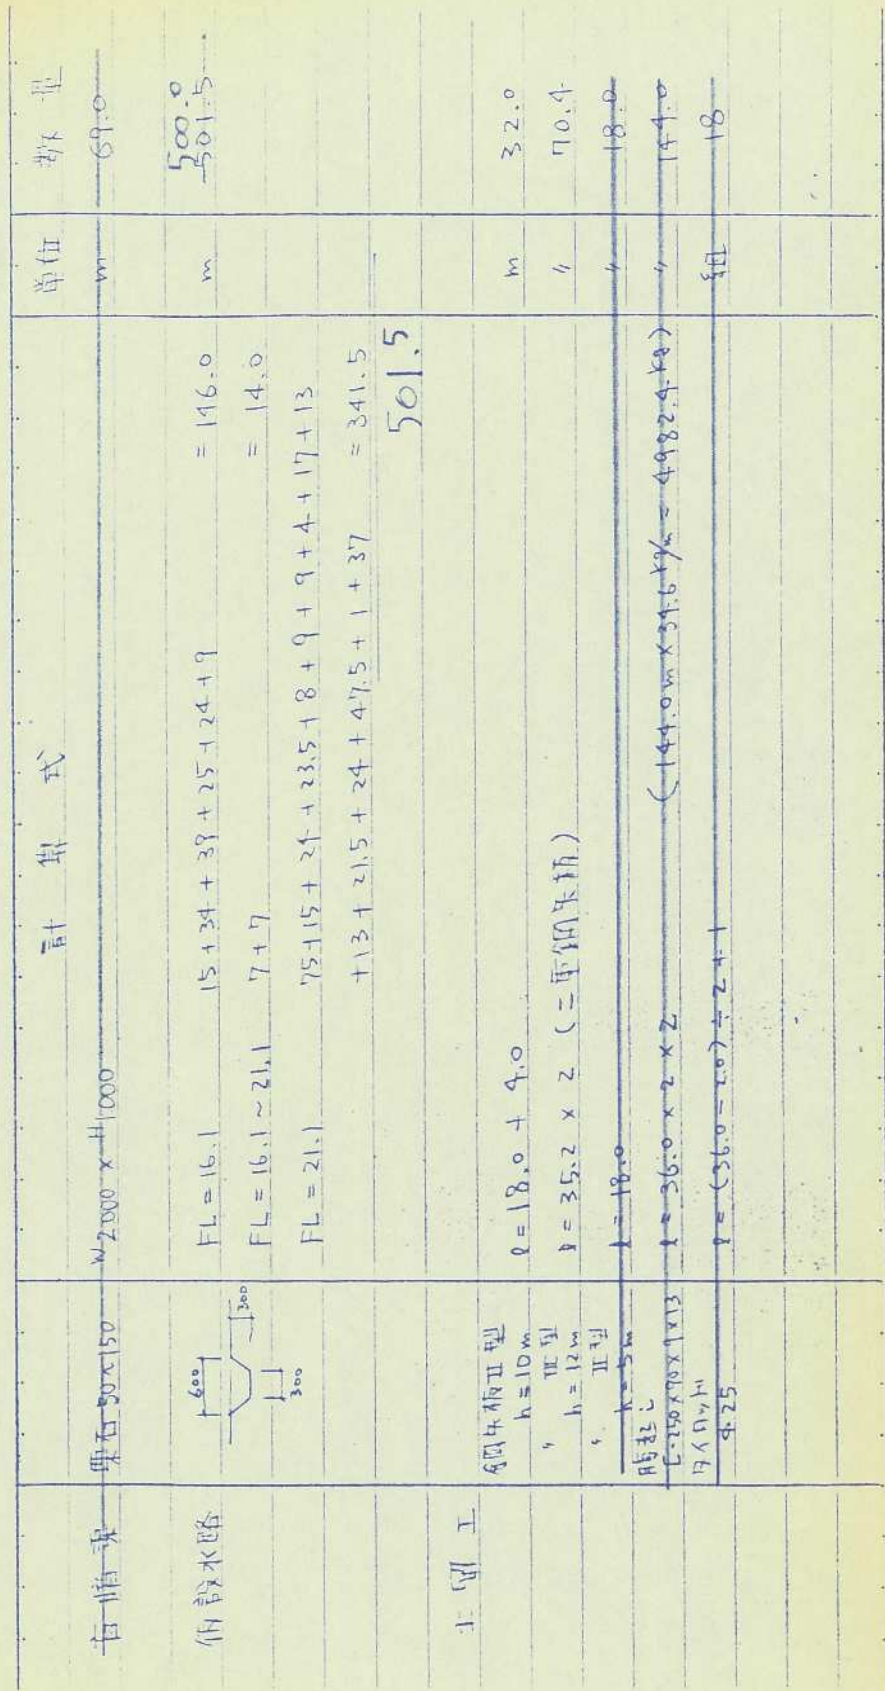 計算式 単位 数量
盲暗渠 栗石50~150 W2000 x H1000 m 69.0
仮設水路 600 300 300
FL = 16.1 15 + 34 + 39 + 25 + 24 + 9 = 146.0 m 500.0
501.5
FL = 16.1 ~ 21.1 7 + 7 = 14.0
FL = 21.1 75 + 15 + 24 + 23.5 + 8 + 9 + 9 + 4 + 17 + 13
+ 13 + 21.5 + 24 + 47.5 + 1 + 37 = 341.5
501.5
土留工
鋼矢板II型
h = 10m ℓ = 18.0 + 4.0 m 32.0
〃 III型
h = 12m ℓ = 35.2 x 2 (二重鋼矢板) 〃 70.4
〃 II型
h = 5m ℓ = 18.0 〃 18.0
腹起し
[-250x90x9x13 ℓ = 36.0 x 2 x 2 (144.0m x 34.6 kg/m = 4982.4 kg) 〃 144.0
タイロッド
φ25 ℓ = (36.0 - 2.0) ÷ 2 + 1 組 18